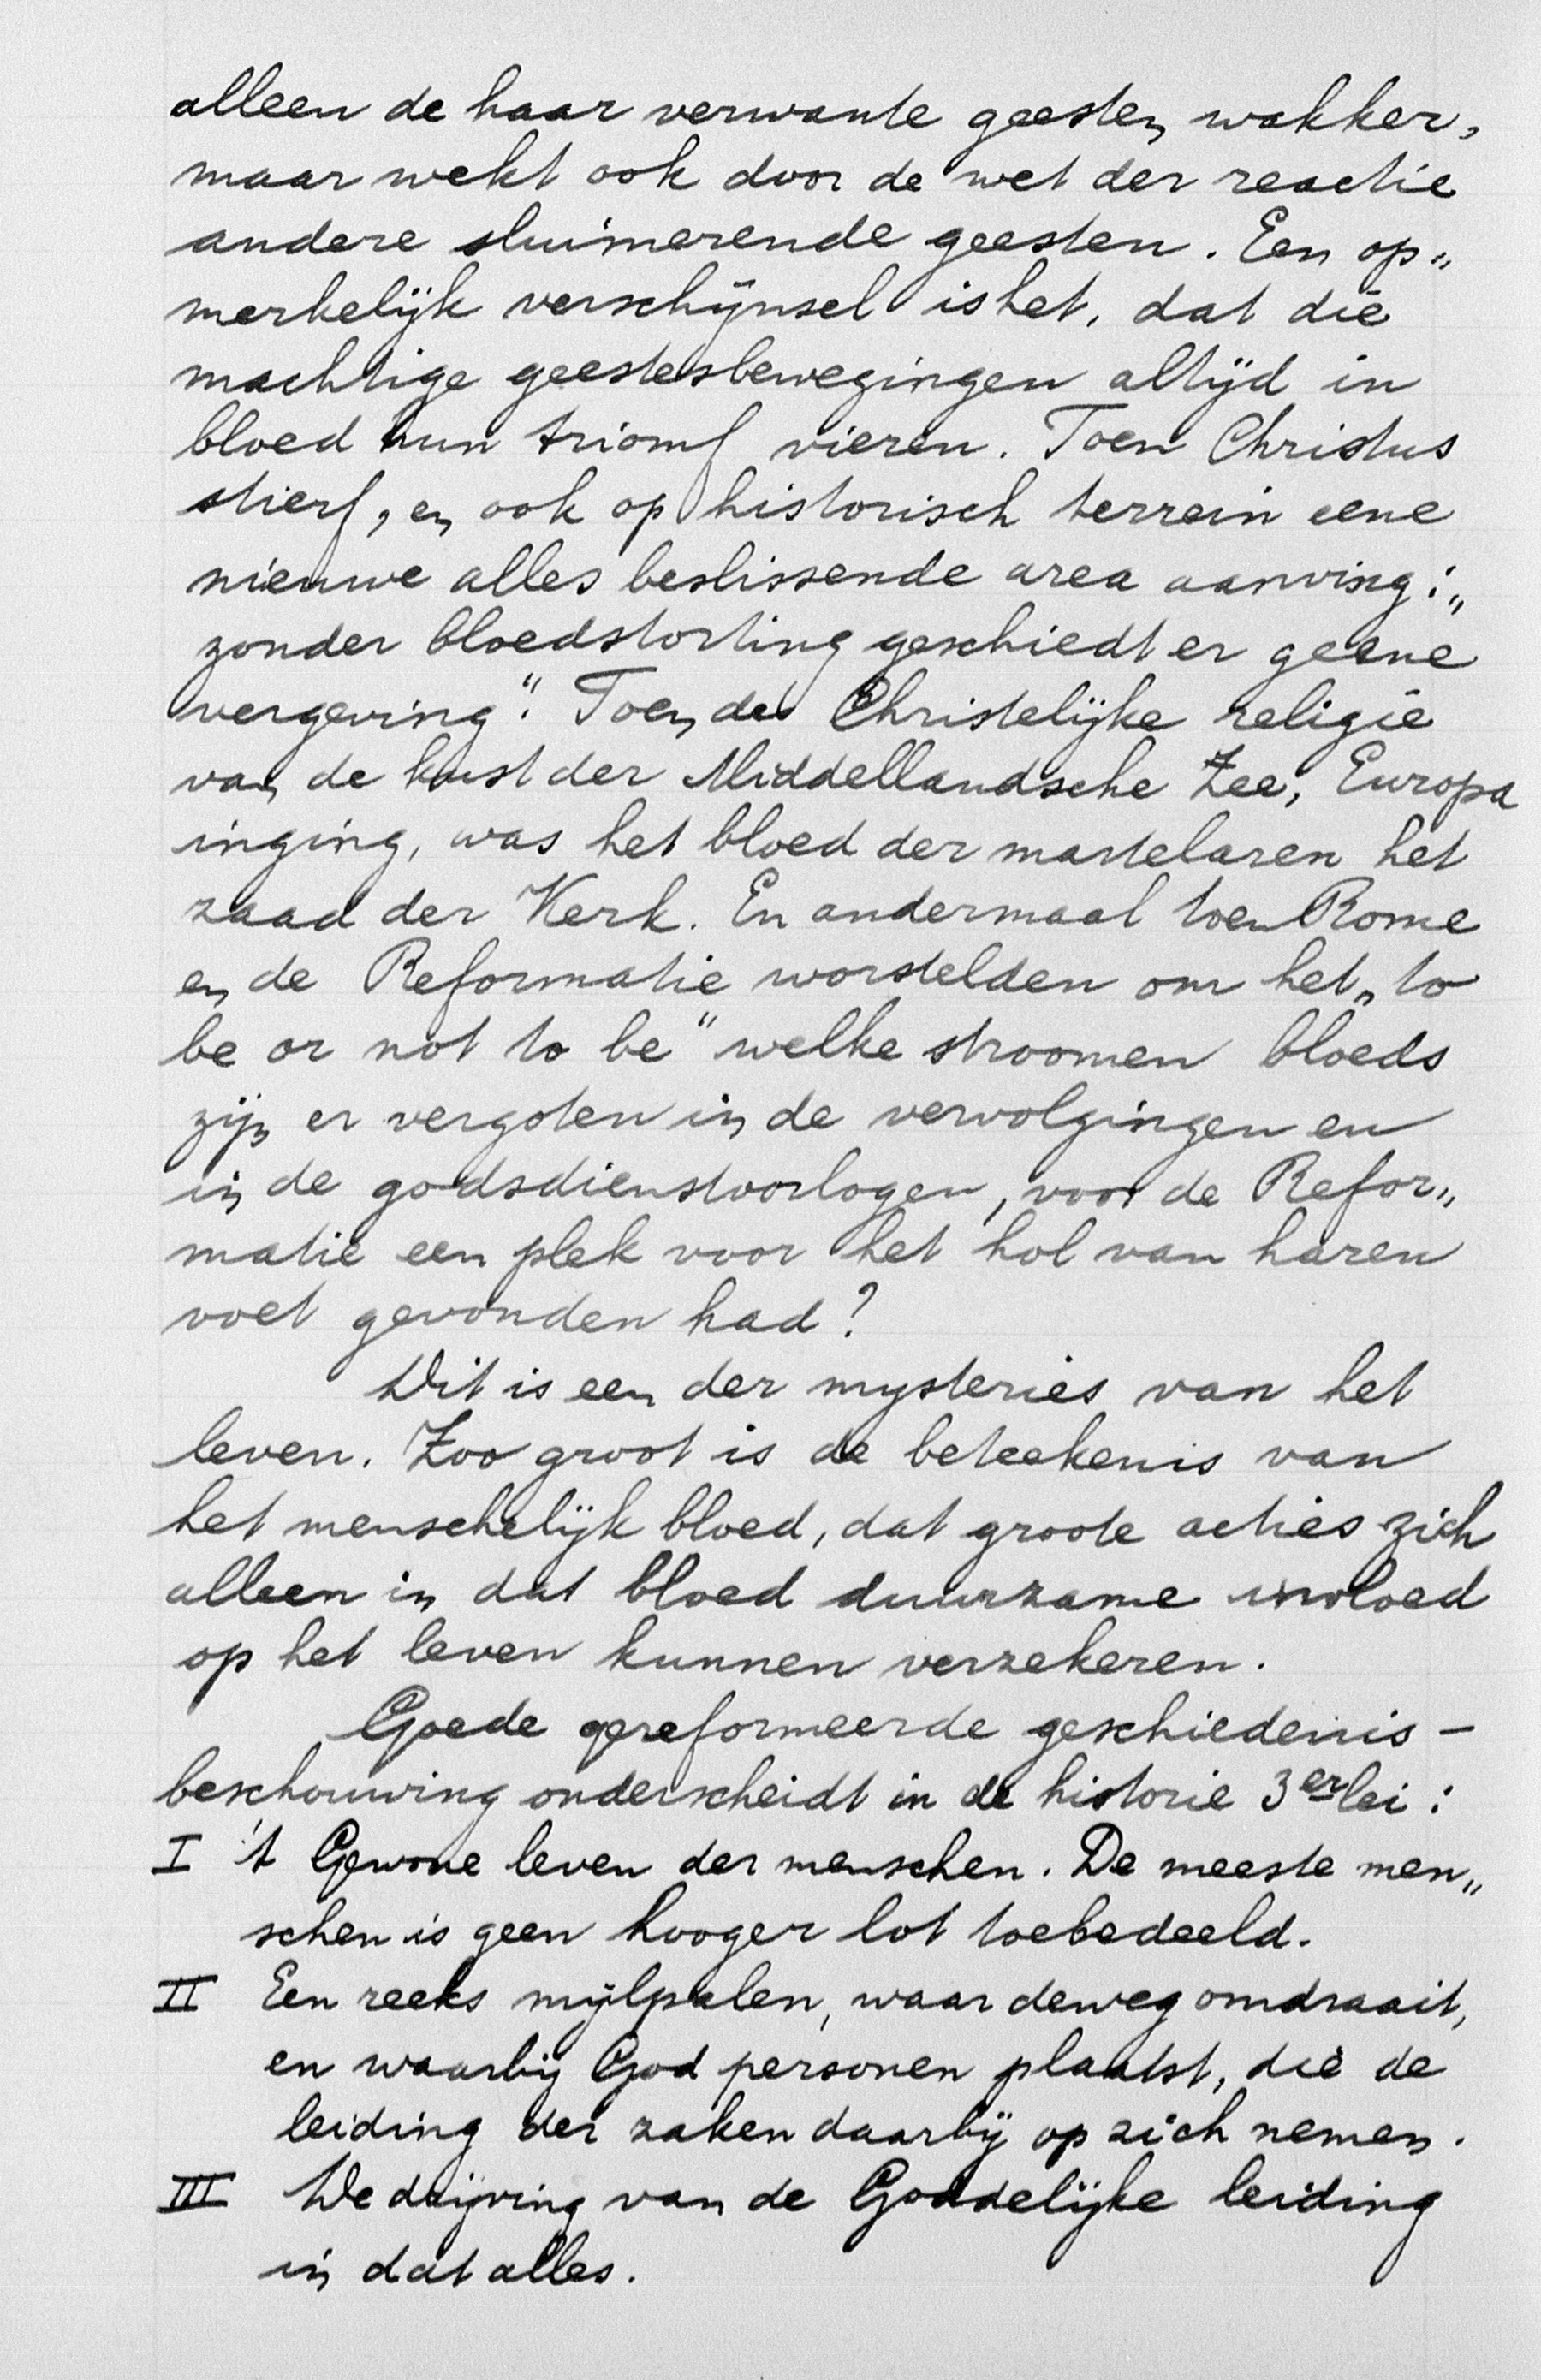 alleen de haar verwante geesten wakker,
maar wekt ook door de wet der reactie
andere sluimerende geesten. Een op„
merkelijk verschijnsel is het, dat die
machtige geestesbewegingen altijd in
bloed hun triomf vieren. Toen Christus
stierf, en ook op historisch terrein eene
nieuwe alles beslissende area aanving: „
zonder bloedstorting geschiedt er geene
vergeving“. Toen de Christelijke religie
van de kust der Middellandsche Zee, Europa
inging, was het bloed der martelaren het
zaad der Kerk. En andermaal toen Rome
en de Reformatie worstelden om het „to
be or not to be“ welke stroomen bloeds
zijn er vergoten in de vervolgingen en
in de godsdienstoorlogen, voor de Refor„
matie een plek voor het hol van haren
voet gevonden had?
Dit is een der mysteries van het
leven. Zoo groot is de beteekenis van
het menschelijk bloed, dat groote acties zich
alleen in dat bloed duurzame invloed
op het leven kunnen verzekeren.
Goede gereformeerde geschiedenis -
beschouwing onderscheidt in de historie 3erlei:
I 't Gewone leven der menschen. De meeste men„
schen is geen hooger lot toebedeeld.
II Een reeks mijlpalen, waar de weg omdraait,
en waarbij God personen plaatst, die de
leiding der zaken daarbij op zich nemen.
III De drijving van de Goddelijke leiding
in dat alles.